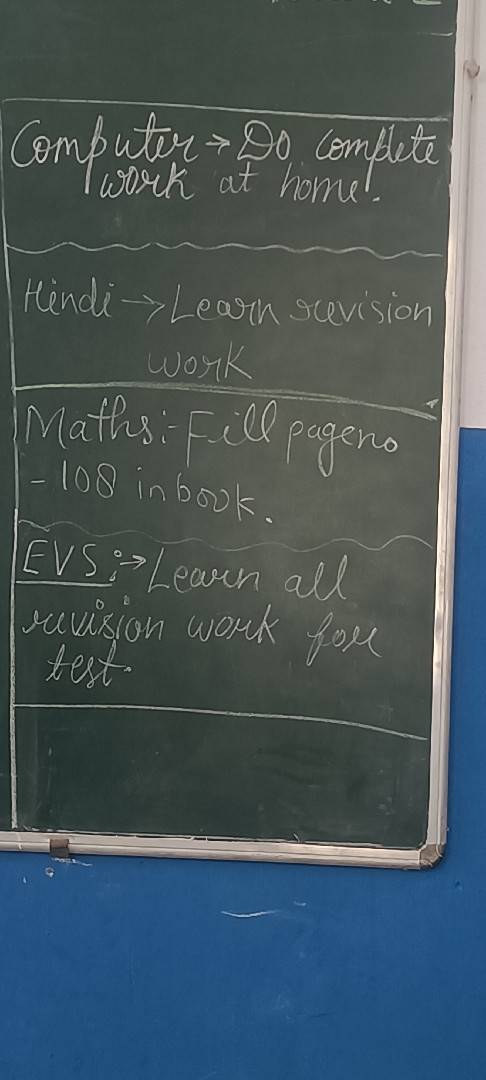 Computer → Do complete
work at home.
Hindi → Learn revision
work
Maths :- Fill page no
- 108 in book.
EVS :→ Learn all
revision work for
test.